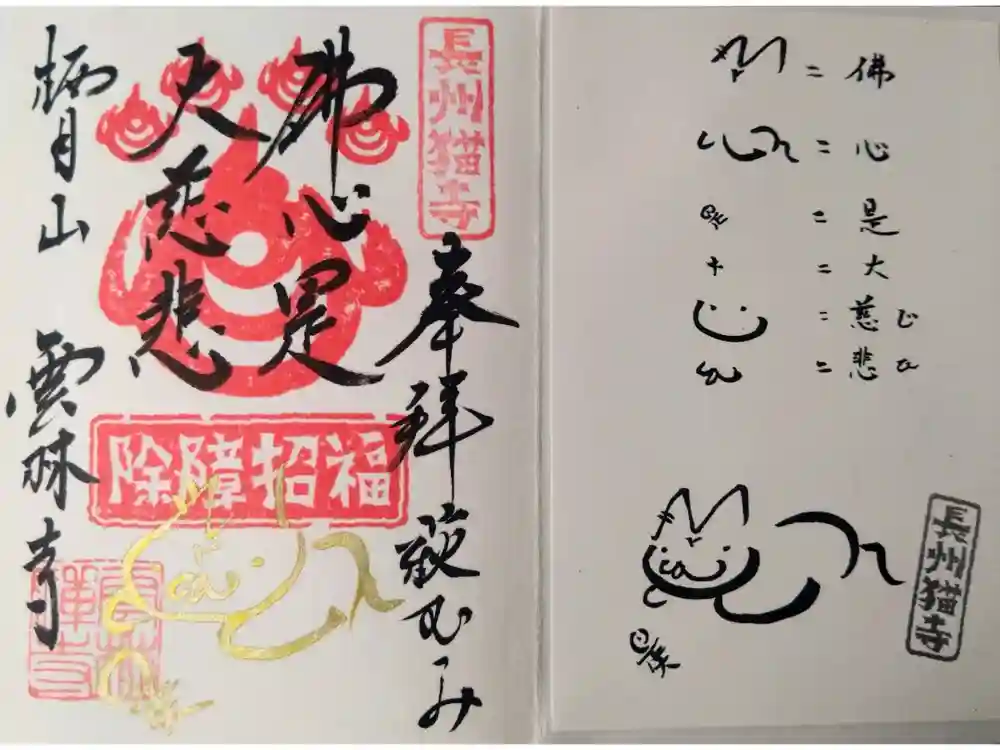 長州猫寺
奉拝 萩むつみ
佛心是
大慈悲
栖月山 雲林寺
除障招福
雲林禪寺
= 佛
= 心
= 是
= 大
= 慈じ
= 悲ひ
長州猫寺